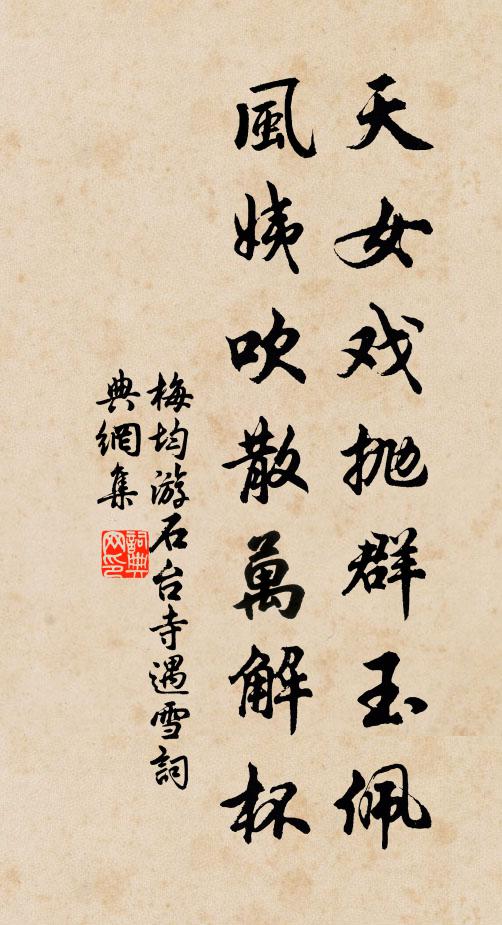 天女戏抛群玉佩
風姨吹散萬斛杯
梅均游石台寺遇雪詞
典網集
詞典
网印